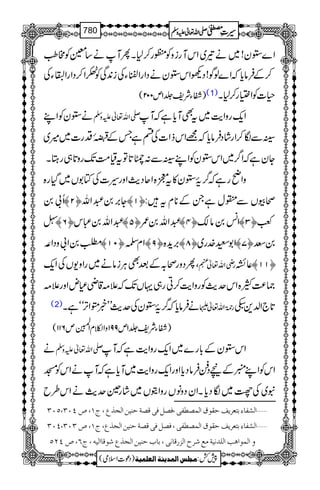 سیرتِ مصطفی صلی اللہ تعالیٰ علیہ وسلم 780
اے ستون! میں نے تیری اس آرزو کو منظور کر لیا۔ پھر آپ نے سامعین کو مخاطب
کر کے فرمایا کہ اے لوگو! دیکھو اس ستون نے دارالفناء کی زندگی کو ٹھکرا کر دارالبقاء کی
حیات کو اختیار کر لیا۔(1) (شفاء شریف جلد۱ ص۲۰۰)
ایک روایت میں یہ بھی آیا ہے کہ آپ صلی اللہ تعالیٰ علیہ وسلم نے ستون کو اپنے
سینہ سے لگا کر ارشاد فرمایا کہ مجھے اس ذات کی قسم ہے جس کے قبضۂ قدرت میں میری
جان ہے کہ اگر میں اس ستون کو اپنے سینہ سے نہ چمٹاتا تو یہ قیامت تک روتا ہی رہتا۔
واضح رہے کہ گریۂ ستون کا یہ معجزہ احادیث اور سیرت کی کتابوں میں گیارہ
صحابیوں سے منقول ہے جن کے نام یہ ہیں: ﴿۱﴾ جابر بن عبداللہ ﴿۲﴾ اُبی بن
کعب ﴿۳﴾ انس بن مالک ﴿۴﴾ عبداللہ بن عمر ﴿۵﴾ عبداللہ بن عباس ﴿۶﴾ سہل
بن سعد ﴿۷﴾ ابو سعید خدری ﴿۸﴾ بریدہ ﴿۹﴾ اُم سلمہ ﴿۱۰﴾ مطلب بن ابی وداعہ
﴿۱۱﴾ عائشہ رضی اللہ تعالیٰ عنہم، پھر دور صحابہ کے بعد بھی ہر زمانے میں راویوں کی ایک
جماعت کثیرہ اس حدیث کو روایت کرتی رہی یہاں تک کہ علامہ قاضی عیاض اور علامہ
تاج الدین سبکی رحمۃ اللہ تعالیٰ علیہما نے فرمایا کہ گریۂ ستون کی حدیث ’’خبر متواتر‘‘ ہے۔(2)
(شفاء شریف جلد۱ ص۱۹۹ والکلام المبین ص۱۱۶)
اس ستون کے بارے میں ایک روایت ہے کہ آپ صلی اللہ تعالیٰ علیہ وسلم نے
اس کو اپنے منبر کے نیچے دفن فرما دیا اور ایک روایت میں آیا ہے کہ آپ نے اس کو مسجد
نبوی کی چھت میں لگا دیا۔ ان دونوں روایتوں میں شارحین حدیث نے اس طرح
1 ……الشفاء بتعریف حقوق المصطفی، فصل فی قصة حنین الجذع، ج۱، ص۳۰٤،۳۰٥
2 ……الشفاء بتعریف حقوق المصطفی، فصل فی قصة حنین الجذع، ج۱، ص۳۰۳،۳۰٤
و المواهب اللدنية مع شرح الزرقانی، باب حنین الجذع شوقا الیه، ج٦، ص٥٢٤
پیش کش: مجلس المدینة العلمیة (دعوتِ اسلامی)